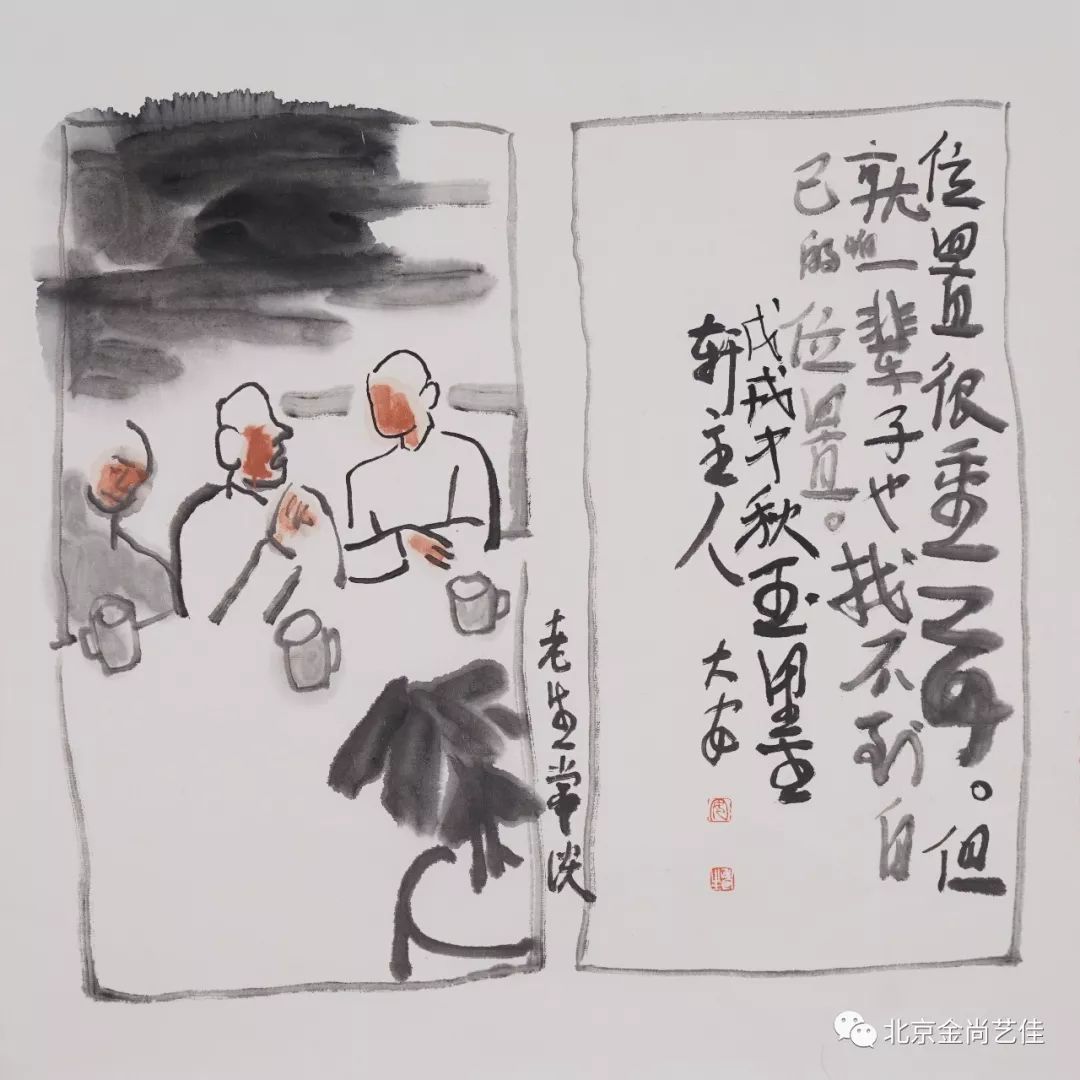 位置很重要。但
就怕一辈子也找不到自
己的位置。
戊戌秋玉墨
轩主人 大安
老生常谈
北京金尚艺佳